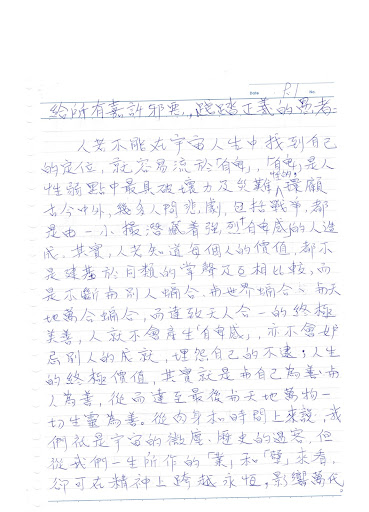 Date P.1 No
給所有嘉許邪惡，踐踏正義的愚者：
人若不能在宇宙人生中找到自己
的定位，就容易流於「自卑」，「自卑」是人
性弱點中最具破壞力及災難性的，環顧
古今中外，幾多人間悲劇，包括戰爭，都
是由一小撮潛藏着強烈「自卑感」的人造
成。其實，人若知道每個人的價值，都不
是建基於目標的掌聲及互相比較，而
是不斷與別人融合、與世界融合、與天
地萬合融合，而達致天人合一的終極
美善，人就不會產生「自卑感」，亦不會妒
忌別人的成就，埋怨自己的不逮；人生
的終極價值，其實就是由自己為善，與
人為善，從而達至最後與天地萬物一
切生靈為善。從肉身和時間上來說，我
們衹是宇宙的微塵、歷史的過客，但
從我們一生所作的「業」和「孽」來看，
卻可在精神上跨越永恆，影響萬代